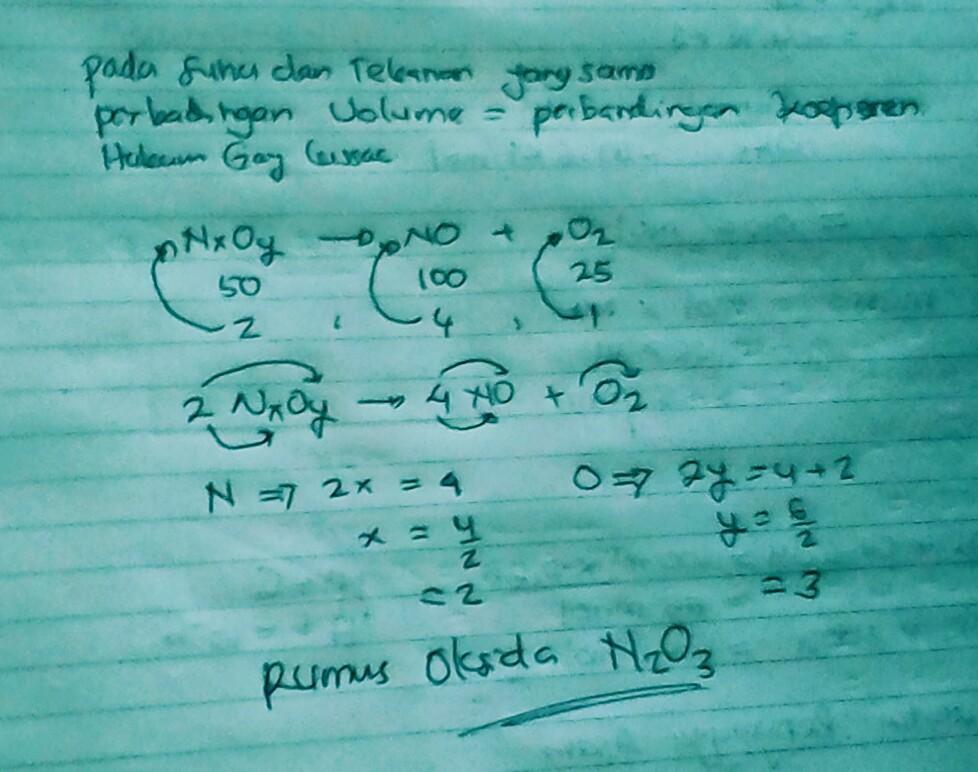 pada suhu dan Tekanan yang sama
perbadingan Volume = perbandingan koefisien
Hukum Gay Lussac
NxOy → NO + O2
50 100 25
2 , 4 , 1
2 NxOy → 4 NO + O2
N ⇒ 2x = 4 O ⇒ 2y = 4 + 2
x = 4/2 y = 6/2
= 2 = 3
Rumus Oksida N2O3